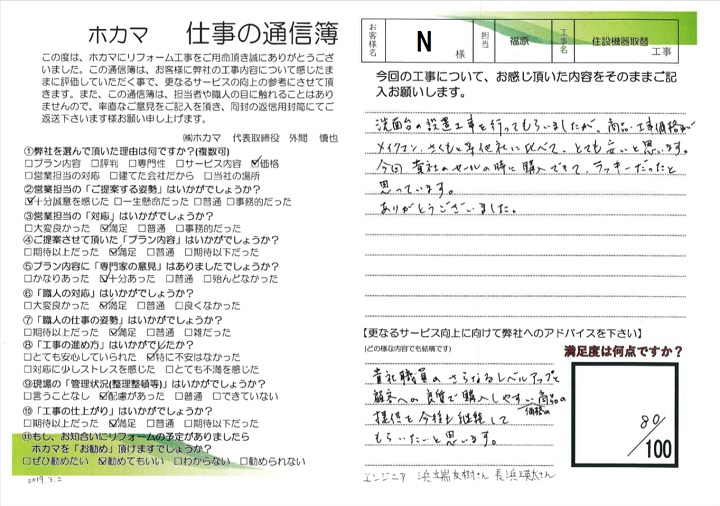 ホカマ 仕事の通信簿
この度は、ホカマにリフォーム工事をご用命頂き誠にありがとうござ
いました。この通信簿は、お客様に弊社の工事内容について感じたま
まに評価していただく事で、更なるサービスの向上の参考にさせて頂
きます。また、この通信簿は、担当者や職人の目に触れることはあり
ませんので、率直なご意見をご記入を頂き、同封の返信用封筒にてご
返送下さいます様お願い申し上げます。
㈱ホカマ 代表取締役 外間 慎也
①弊社を選んで頂いた理由は何ですか?(複数可)
□プラン内容 □評判 □専門性 □サービス内容 ☑価格
□営業担当の対応 □建てた会社だから □当社の場所
②営業担当の「ご提案する姿勢」はいかがでしょうか?
☑十分誠意を感じた □一生懸命だった □普通 □事務的だった
③営業担当の「対応」はいかがでしょうか?
□大変良かった ☑満足 □普通 □事務的だった
④ご提案させて頂いた「プラン内容」はいかがでしょうか?
□期待以上だった ☑満足 □普通 □期待以下だった
⑤プラン内容に「専門家の意見」はありましたでしょうか?
□かなりあった ☑十分あった □普通 □殆んどなかった
⑥「職人の対応」はいかがでしょうか?
□大変良かった ☑満足 □普通 □良くなかった
⑦「職人の仕事の姿勢」はいかがでしょうか?
□期待以上だった ☑満足 □普通 □雑だった
⑧「工事の進め方」はいかがでしたか?
□とても安心していられた ☑特に不安はなかった
□対応に少しストレスを感じた □とても不満を感じた
⑨現場の「管理状況(整理整頓等)」はいかがでしょうか?
□言うことなし ☑配慮があった □普通 □できていない
⑩「工事の仕上がり」はいかがでしょうか?
□期待以上だった ☑満足 □普通 □期待以下だった
⑪もし、お知合いにリフォームの予定がありましたら
ホカマを「お勧め」頂けますでしょうか?
□ぜひ勧めたい ☑勧めてもいい □わからない □勧められない
2019.3.2
お客様名 N 様 担当 福原 工事名 住設機器取替 工事
今回の工事について、お感じ頂いた内容をそのままご記
入お願いします。
洗面台の設置工事を行ってもらいましたが、商品・工事価格が
メイクマン、さくもと等他社に比べて、とても安いと思います。
今回 貴社のセールの時に購入できて、ラッキーだったと
思っています。
ありがとうございました。
【更なるサービス向上に向けて弊社へのアドバイスを下さい】
(どの様な内容でも結構です)
満足度は何点ですか?
貴社職員の さらなるレベルアップと
顧客への良質で購入しやすい価格の商品の
提供を今後も継続して
もらいたいと思います。
80
/100
エンジニア